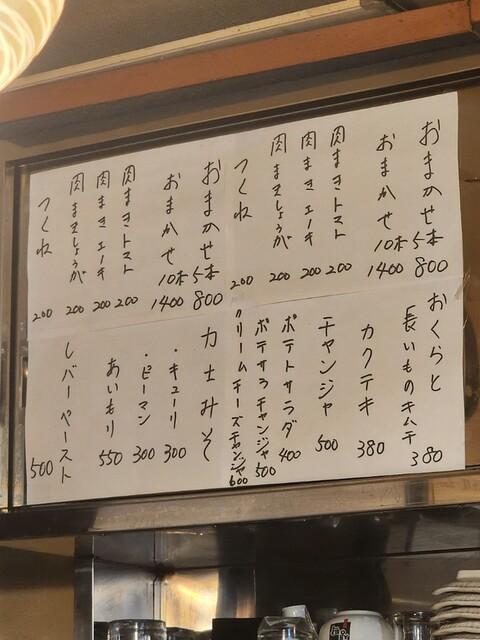 おまかせ5本 800
おまかせ10本 1400
肉まきトマト 200
肉まきエーキ 200
肉まきしょうが 200
つくね 200
おまかせ5本 800
おまかせ10本 1400
肉まきトマト 200
肉まきエーキ 200
肉まきしょうが 200
つくね 200
おくらと
長いものキムチ 380
カクテキ 380
チャンジャ 500
ポテトサラダ 400
ポテサラチャンジャ 500
クリームチーズチャンジャ 600
力士みそ
・キューリ 300
・ピーマン 300
あいもり 550
レバーペースト 500